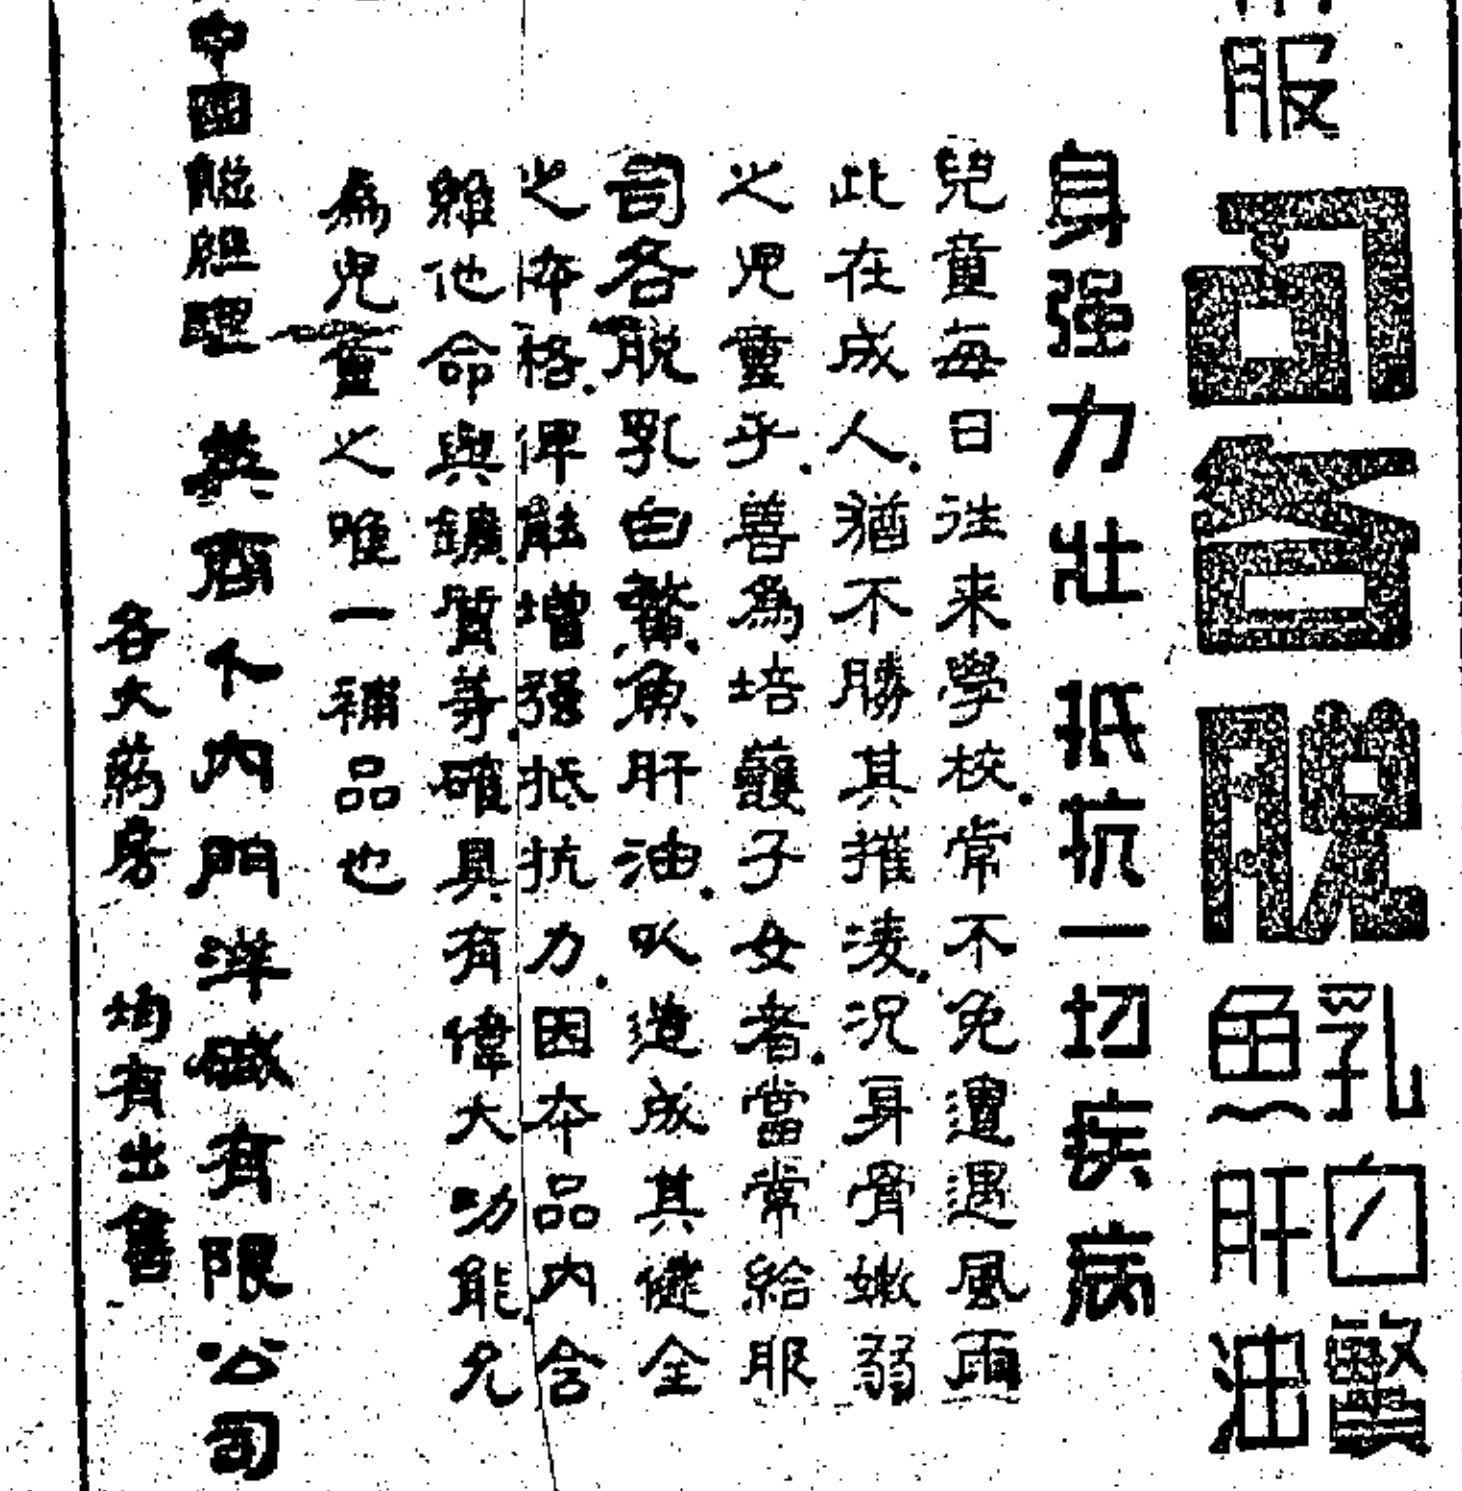 服
司各脱
乳白鰵
魚肝油
身强力壯 抵抗一切疾病
兒童每日往来學校.常不免遭遇風雨
此在成人.猶不勝其摧凌.況身骨嫩弱
之児童乎.善為培護子女者.當常給服
司各脱乳白鰵魚肝油.以造成其健全
之体格.俾能增强抵抗力.因本品内含
維他命與鑛質等.確具有偉大功能.允
為兒童之唯一補品也
中國總經理 英商卜內門洋碱有限公司
各大葯房 均有出售